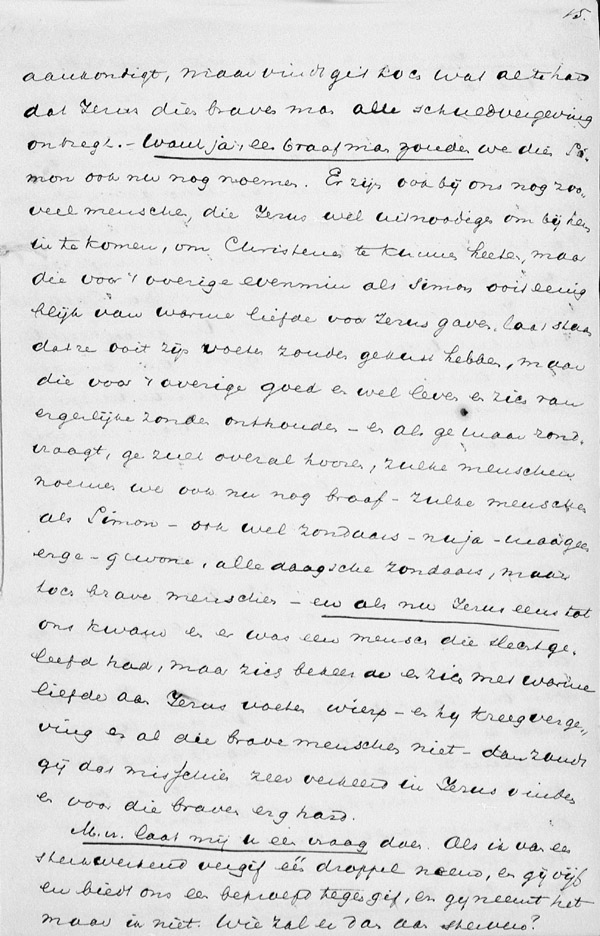 15.
aankondigt, maar vindt gij toch wat al te hard
dat Jezus dien braven man alle schuldvergeving
ontzegt. – Want ja, een braaf man zouden we dien Si-
mon ook nu nog noemen. Er zijn ook bij ons nog zoo
veel menschen, die Jezus wel uitnoodigen om bij hen
in te komen, om Christenen te kunnen heeten, maar
die voor 't overige evenmin als Simon ooit eenig
blijk van warme liefde voor Jezus gaven, laat staan
dat ze ooit zijn voeten zouden gekust hebben, maar
die voor 't overige goed en wel leven en zich van
ergerlijke zonden onthouden – en als ge maar rond-
vraagt, ge zult overal hooren, zulke menschen
noemen we ook nu nog braaf – zulke menschen
als Simon – ook wel zondaars – nu ja – maar geen
erge – gewone, alledaagsche zondaars, maar
toch brave menschen – en als nu Jezus eens tot
ons kwam en er was een mensch die slecht ge-
leefd had, maar zich bekeerde en zich met warme
liefde aan Jezus voeten wierp – en hij kreeg verge-
ving en al die brave menschen niet – dan zoudt
gij dat misschien zeer verkeerd in Jezus vinden
en voor die braven erg hard.
M. v. laat mij u een vraag doen. Als ik van een
sterkwerkend vergif één droppel neem, en gij vijf
en men biedt ons een beproefd tegengif, en gij neemt het
maar ik niet. Wie zal er dan aan sterven?